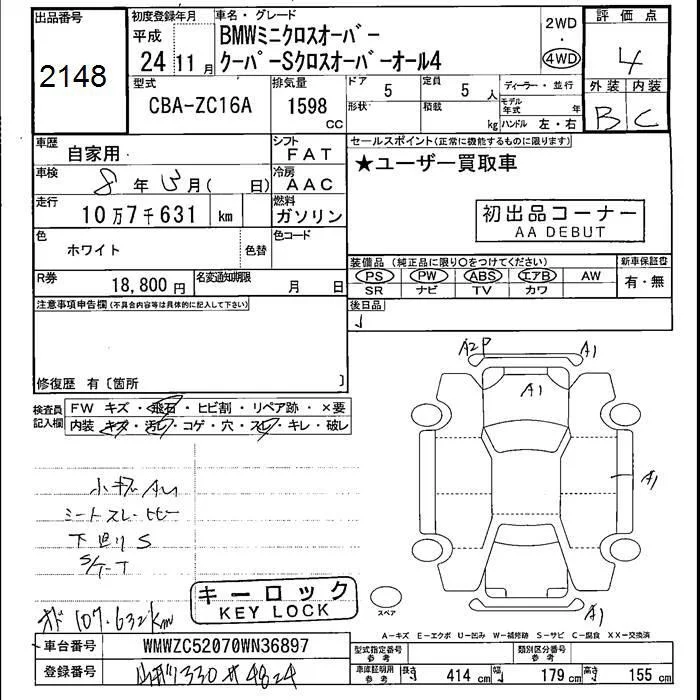 出品番号
2148
初度登録年月
平成
24 11月
車名・グレード
BMWミニクロスオーバー
クーパーSクロスオーバーオール4
2WD
・
4WD
評価点
4
外装 内装
B C
型式
CBA-ZC16A
排気量
1598
CC
ドア 5
形状
定員 5 人
積載 kg
ディーラー・並行
モデル年式 年
ハンドル 左・右
車歴
自家用
シフト
FAT
車検
8年 月( 日)
冷房
AAC
走行
10万7千631 km
燃料
ガソリン
色
ホワイト
色替
色コード
R券
18,800円
名変通知期限
月 日
セールスポイント(正常に機能するものに限ります)
★ユーザー買取車
初出品コーナー
AA DEBUT
装備品(純正品に限り○をつけてください)
PS PW ABS エアB AW
SR ナビ TV カワ
新車保証書
有・無
後日品
注意事項申告欄(不具合内容等は具体的に記入して下さい)
修復歴 有〔箇所 〕
検査員記入欄
FW キズ・飛石・ヒビ割・リペア跡・×要
内装・キズ・汚レ・コゲ・穴・スレ・キレ・破レ
小キズ AU
シートスレ・
下廻り S
S/ケ-T
オド 107.632km
キーロック
KEY LOCK
A2P
A1
A1
A1
A1
スペア
A-キズ E-エクボ U-凹み W-補修跡 S-サビ C-腐食 XX-交換済
車台番号
WMWZC52070WN36897
登録番号
330 4824
型式指定番号
参考
類別区分番号
参考
車庫証明用
参考
長さ 414 cm 幅 179 cm 高さ 155 cm